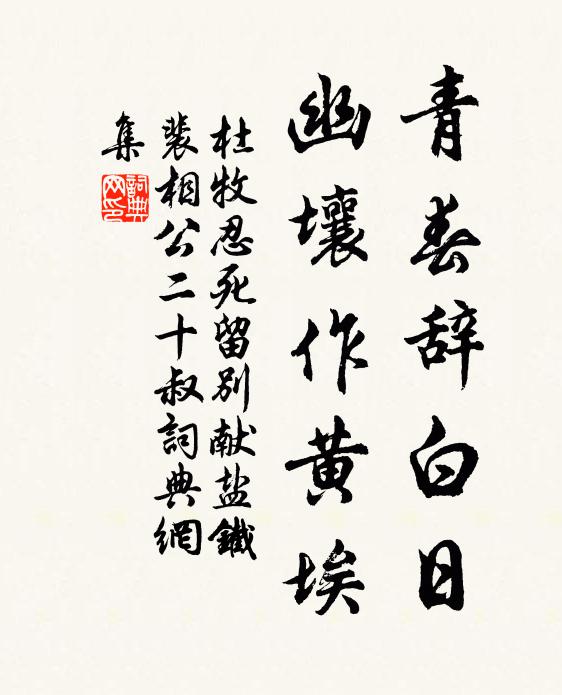 青春辞白日
幽壤作黄埃
杜牧忍死留別献盐鐵
裴相公二十叔詞典網
集
詞典网印